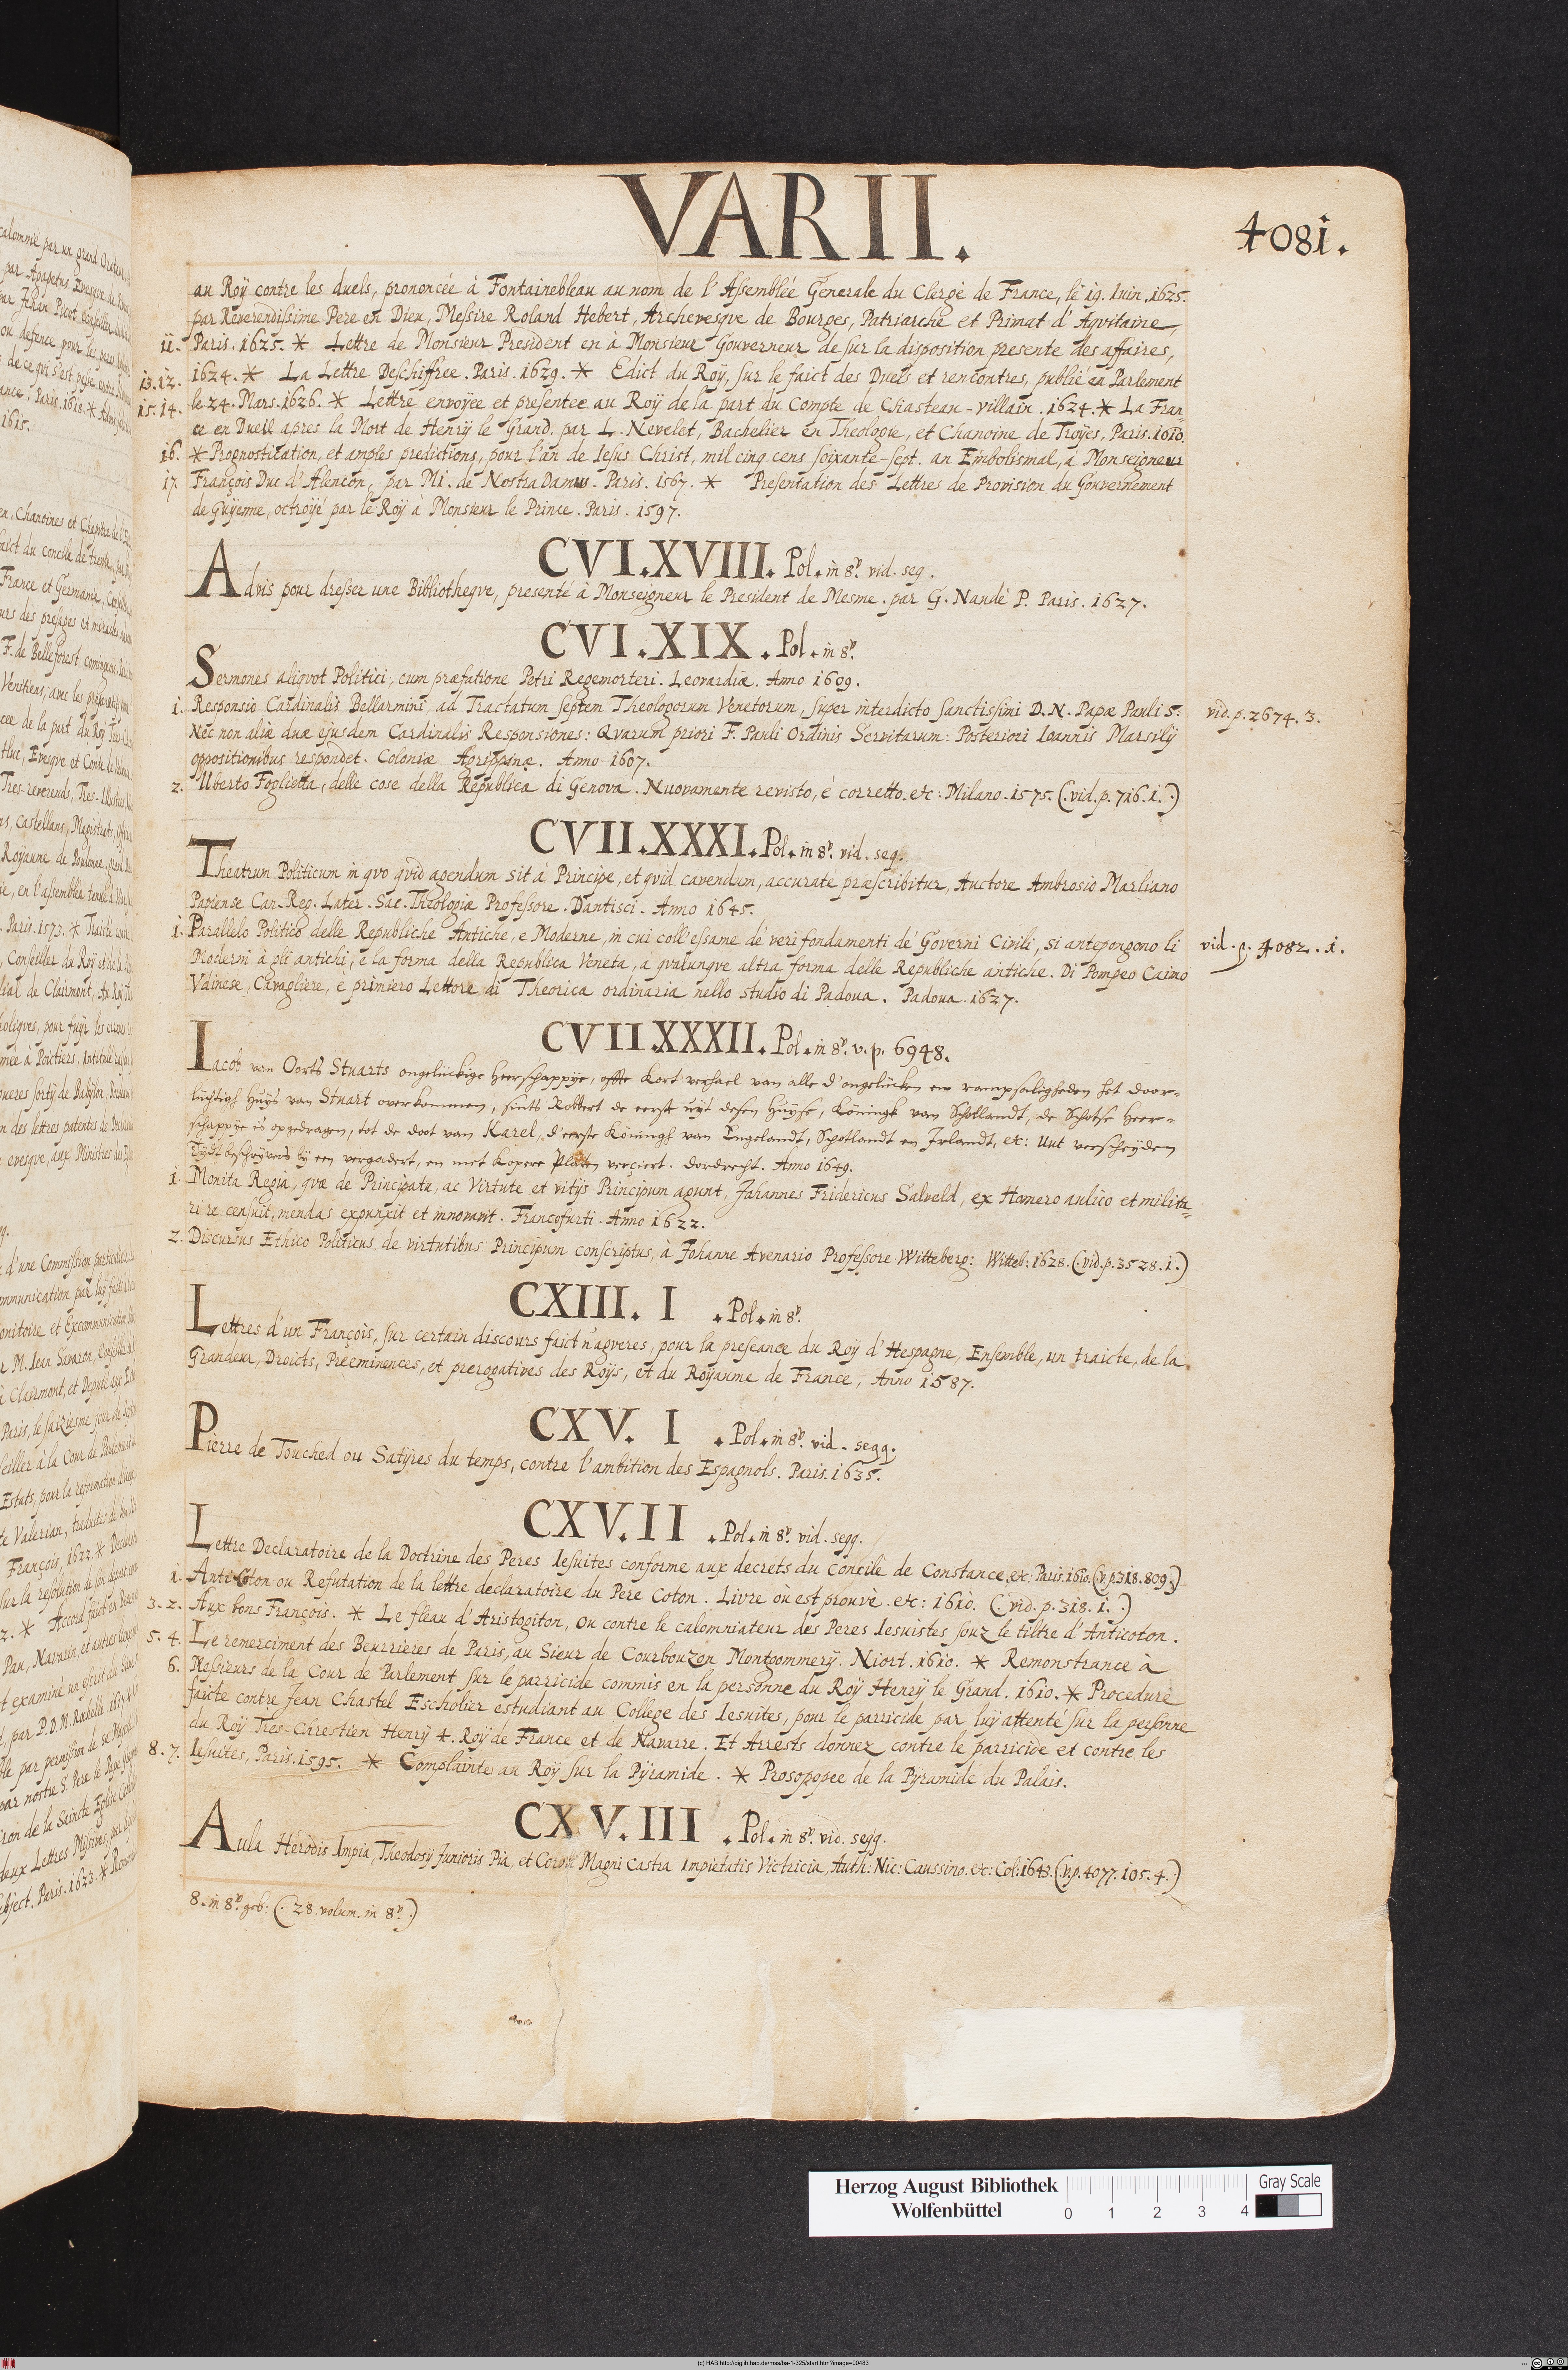 VARII.
4081.
au Roÿ contre les duels, prononcée à Fontainebleau au nom de l'Assemblée Generale du Clergè de France, le 19. Iuin. 1625.
par Reverendissime Pere en Dieu, Messire Roland Hebert, Archevesqve de Bourges, Patriarche et Primat d'Aqvitaine,
11. Paris. 1625. * Lettre de Monsieur President en à Monsieur Gouverneur de sur la disposition presente des affaires,
13.12. 1624. * La Lettre Deschiffree. Paris. 1629. * Edict du Roÿ, sur le faict des Duels et rencontres, publié en Parlement
15.14. le 24. Mars. 1626. * Lettre envoÿee et presentee au Roÿ de la part du Compte de Chasteau-villain. 1624. * La Fran-
ce en Dueil apres la Mort de Henrÿ le Grand. par L. Nevelet, Bachelier en Theologie, et Chanoine de Troÿes, Paris. 1610.
16. * Prognostication, et amples predictions, pour l'an de Iesus Christ, mil cinq cens soixante-sept. an Embolismal, a Monseigneur
17. François Duc d'Alencon, par Mi. de Nostra Damus. Paris. 1567. * Presentation des Lettres de Provision du Gouvernement
de Guÿenne, octroÿé par le Roÿ à Monsieur le Prince. Paris. 1597.
CVI.XVIII. Pol. in 8º. vid. seq.
Advis pour dresser une Bibliotheqve, presenté à Monseigneur le President de Mesme. par G. Naudé P. Paris. 1627.
CVI.XIX. Pol. in 8º.
Sermones aliqvot Politici, cum præfatione Petri Regemorteri. Leovardiæ. Anno 1609.
1. Responsio Cardinalis Bellarmini, ad Tractatum septem Theologorum Venetorum, super interdicto sanctissimi D.N. Papæ Pauli 5. vid. p. 2674. 3.
Nec non aliæ duæ ejusdem Cardinalis Responsiones: Qvarum priori F. Pauli Ordinis Servitarum: Posteriori Ioannis Marsilÿ
oppositionibus respondet. Coloniæ Agrippinæ. Anno 1607.
2. Uberto Foglietta, delle cose della Republica di Genova. Nuovamente revisto, é corretto. etc: Milano. 1575. (.vid. p. 716. 1.)
CVII.XXXI. Pol. in 8º. vid. seq.
Theatrum Politicum in qvo qvid agendum sit à Principe, et qvid cavendum, accuratè præscribitur, Auctore Ambrosio Marliano
Papiense Can. Reg. Later. Sac. Theologiæ Professore. Dantisci. Anno 1645.
1. Parallelo Politico delle Republiche Antiche, e Moderne, in cui coll'essame dé veri fondamenti dé Governi Civili, si antepongono li vid. p. 4082. 1.
Moderni à gli antichi, è la forma della Republica Veneta, à qvalunqve altra forma delle Republiche antiche. Di Pompeo Caimo
Vdinese, Cavagliere, è primiero Lettore di Theorica ordinaria nello studio di Padoua. Padoua. 1627.
CVII.XXXII. Pol. in 8º. v. p. 6948.
Iacob van Oorts Stuarts ongeluckige heerschappÿe, ofte Kort verhael van alle d'ongelucken en rampsaligheden het door-
luchtigh Huÿs van Stuart overkommen, sints Robbert de eerste uÿt desen Huÿse, Köningk van Schotlandt, de Schotse Heer-
schappÿe is opgedragen, tot de doot van Karel, d'eerste Köningh van Engelandt, Schotlandt en Irlandt, etc: uut verscheÿden
Tÿdt beschrÿvers bÿ een vergadert, en met Kopere Platen verçiert. Dordrecht. Anno 1649.
1. Monita Regia, qvæ de Principatu, ac Virtute et vitÿs Principum agunt, Johannes Fridericus Salveld, ex Homero aulico et milita-
ri re censuit, mendas expunxit et innovavit. Francofurti. Anno 1622.
2. Discursus Ethico Politicus de virtutibus Principum conscriptus, à Johanne Avenario Professore Witteberg: Witteb: 1628. (.vid. p. 3528. 1.)
CXIII. I. Pol. in 8º.
Lettres d'un François, sur certain discours faict n'agveres, pour la preseance du Roÿ d'Hespagne, Ensemble, un traicte, de la
Grandeur, Droicts, Preeminences, et prerogatives des Roÿs, et du Royaume de France, Anno 1587.
CXV. I. Pol. in 8º. vid. seqq.
Pierre de Touched ou Satÿres du temps, contre l'ambition des Espagnols. Paris. 1635.
CXV. II. Pol. in 8º. vid. seqq.
Lettre Declaratoire de la Doctrine des Peres Iesuites conforme aux decrets du Concile de Constance. etc: Paris. 1610. (.v. p. 318. 809.)
1. Anti-Coton ou Refutation de la lettre declaratoire du Pere Coton. Livre ou est prouvè. etc: 1610. (.vid. p. 318. 1.)
3. 2. Aux bons François. * Le fleau d'Aristogiton, ou contre le calomniateur des Peres Iesuistes souz le tiltre d'Anticoton.
5. 4. Le remerciment des Beurrieres de Paris, au Sieur de Courbouzon Montgommerÿ. Niort. 1610. * Remonstrance à
6. Messieurs de la Cour de Parlement sur le parricide commis en la personne du Roÿ Henrÿ le Grand. 1610. * Procedure
faicte contre Jean Chastel Escholier estudiant au College des Iesuites, pour le parricide par luÿ attenté sur la personne
du Roÿ Tres-Chrestien Henrÿ 4. Roÿ de France et de Navarre. Et Arrests donnez contre le parricide et contre les
8. 7. Iesuites, Paris. 1595. * Complainte au Roÿ sur la Pÿramide. * Prosopopee de la Pÿramide du Palais.
CXV. III. Pol. in 8º. vid. seqq.
Aula Herodis Impia, Theodosÿ Junioris Pia, et Magni Castra Impietatis Victricia, Auth: Nic: Caussino. etc: Col: 1643. (.v. p. 4077. 105. 4.)
8. in 8º. geb: (. 28. volum. in 8º.)
Herzog August Bibliothek
Wolfenbüttel
0 1 2 3 4
Gray Scale
(c) HAB http://diglib.hab.de/mss/ba-1-325/start.htm?image=00483